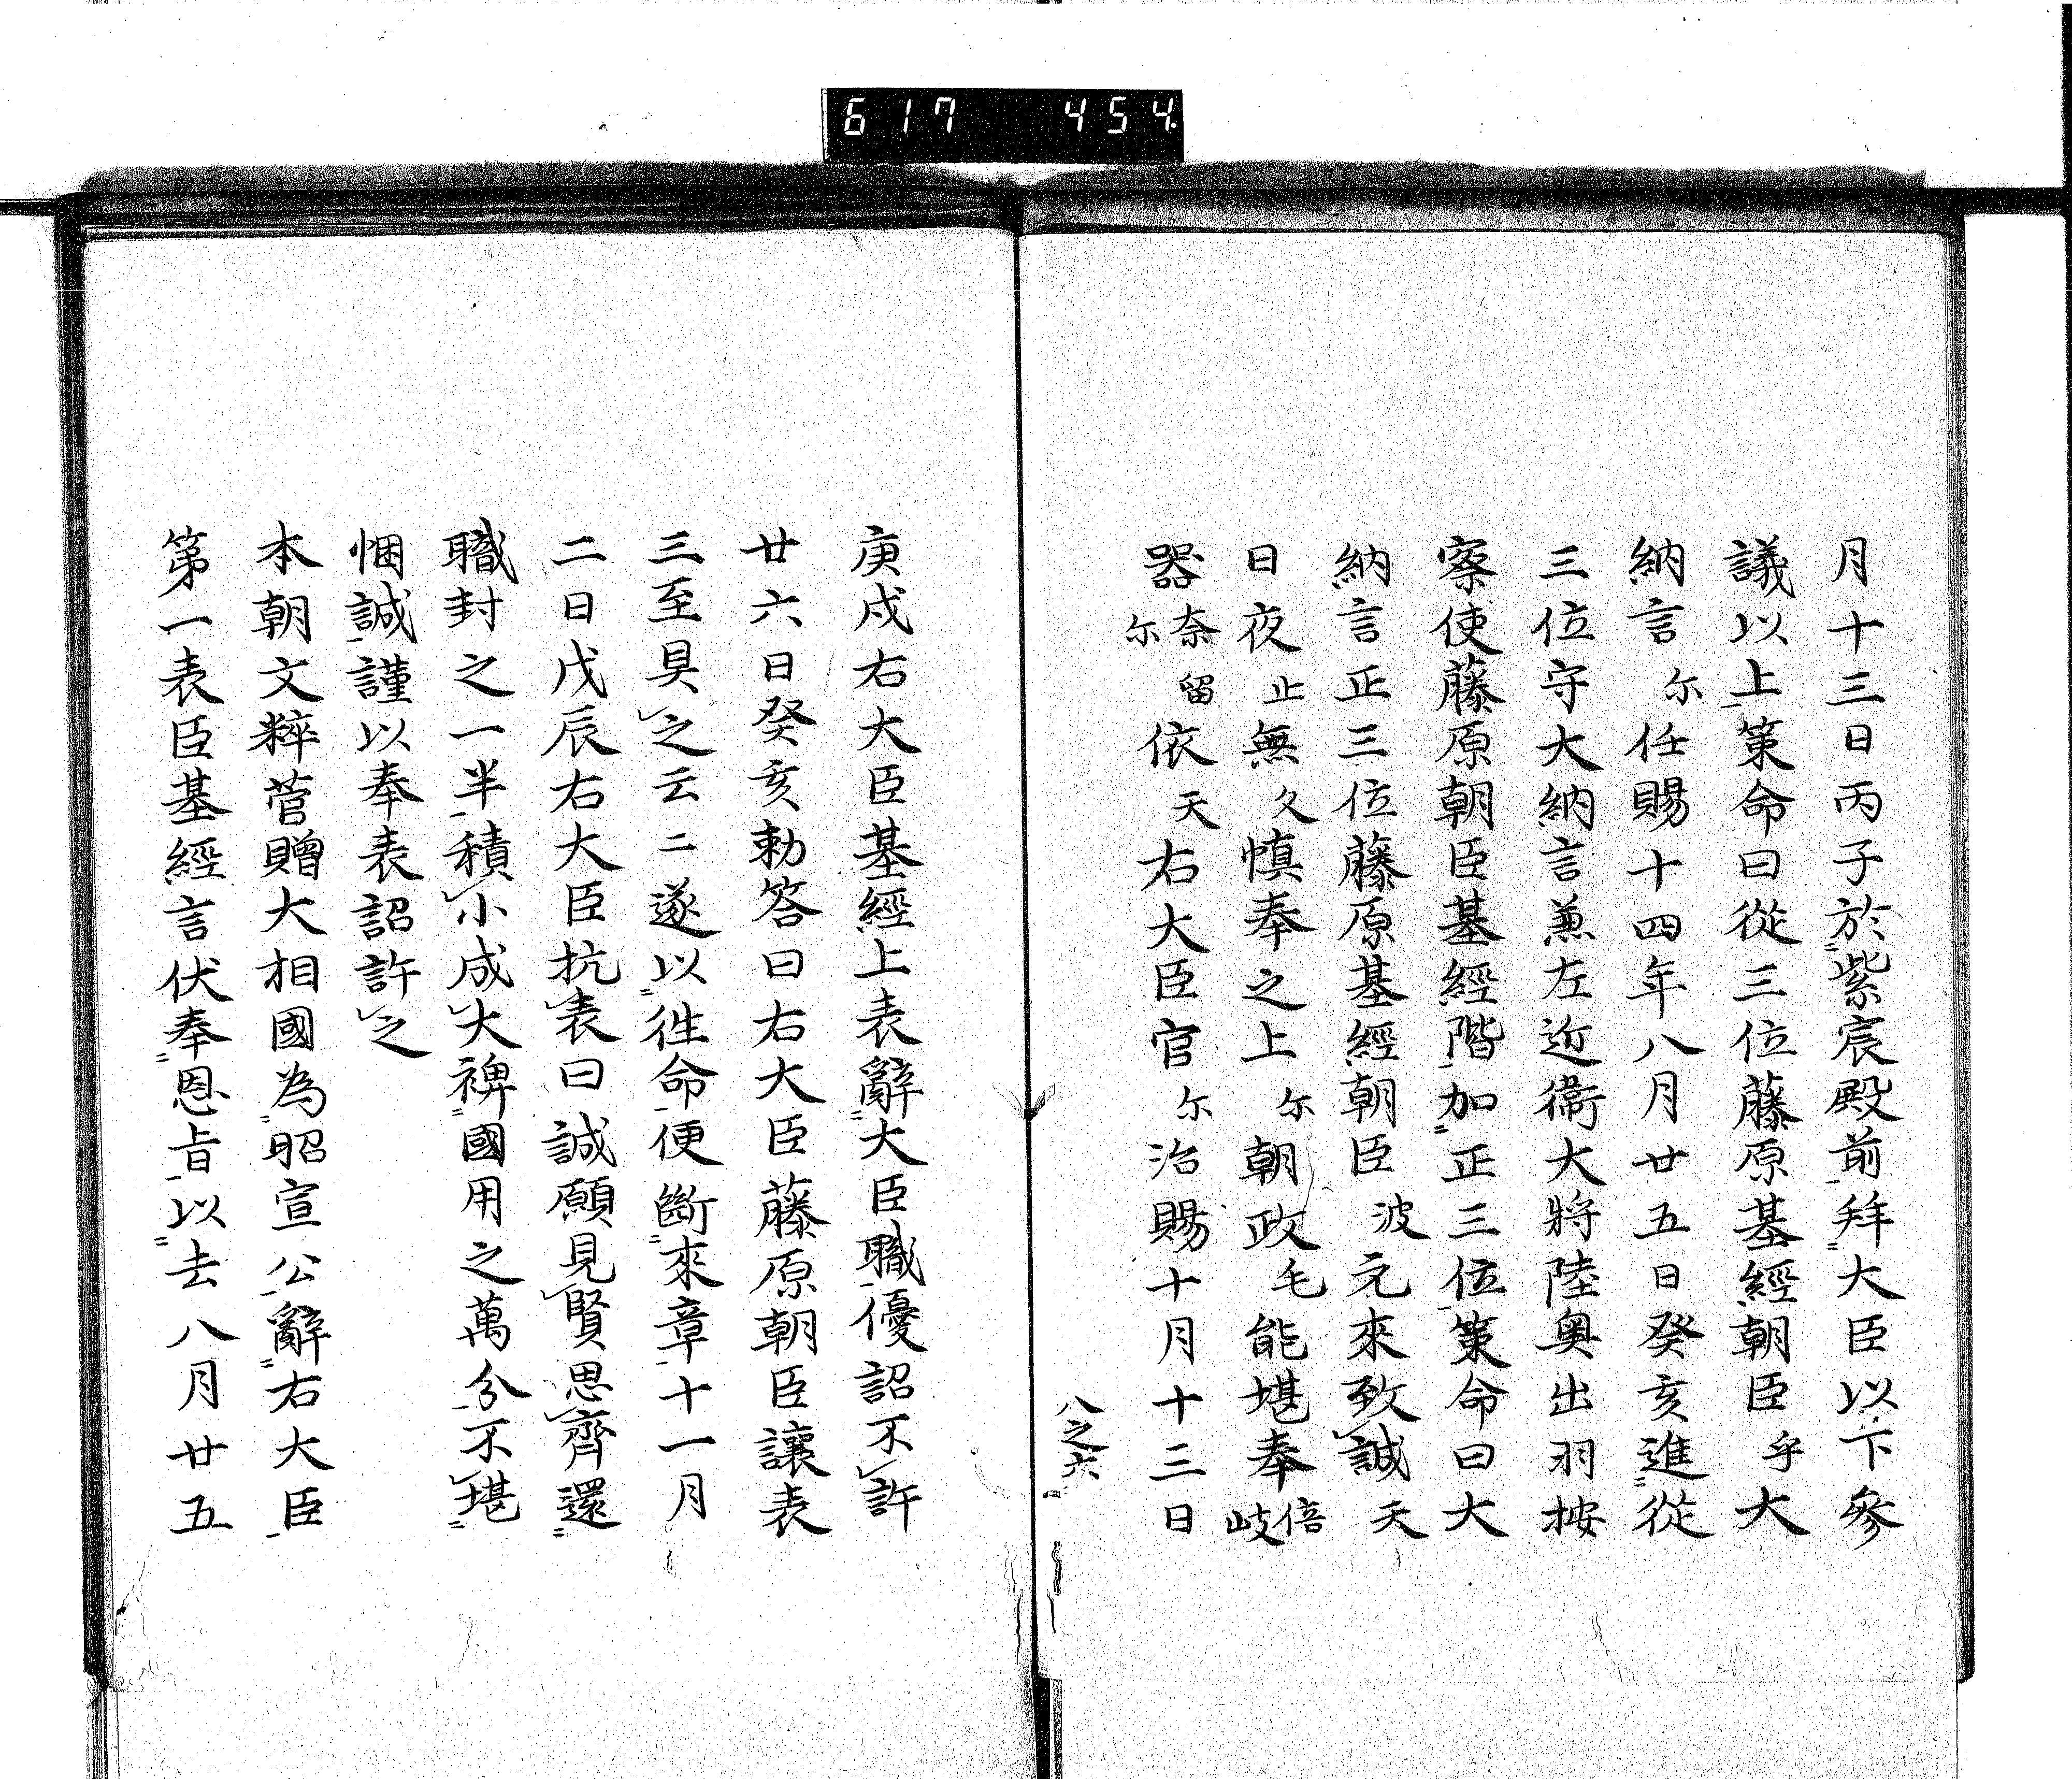 617 454.
月十三日丙子於紫宸殿前拜大臣以下參
議以上策命曰從三位藤原基經朝臣乎大
納言尓任賜十四年八月廿五日癸亥進從
三位守大納言兼左近衞大將陸奥出羽按
察使藤原朝臣基經階加正三位策命曰大
納言正三位藤原基經朝臣波元來致誠天
日夜止無久慎奉之上尓朝政毛能堪奉倍岐
器奈留尓依天右大臣官尓治賜十月十三日
八之六
庚戌右大臣基經上表辭大臣職優詔不許
廿六日癸亥勅答曰右大臣藤原朝臣讓表
三至具之云二遂以徃命便斷來章十一月
二日戊辰右大臣抗表曰誠願見賢思齊還
職封之一半積小成大裨國用之萬分不堪
悃誠謹以奉表詔許之
本朝文粹菅贈大相國為昭宣公辭右大臣
第一表臣基經言伏奉恩旨以去八月廿五